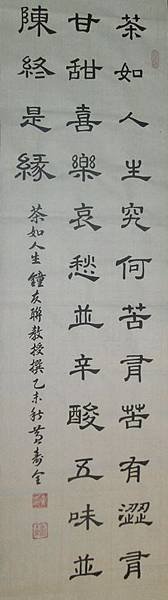 茶如人生究何苦有苦有澀有
甘甜喜樂哀愁並辛酸五味並
陳終是緣
茶如人生 鐘友聯教授撰 乙未秋